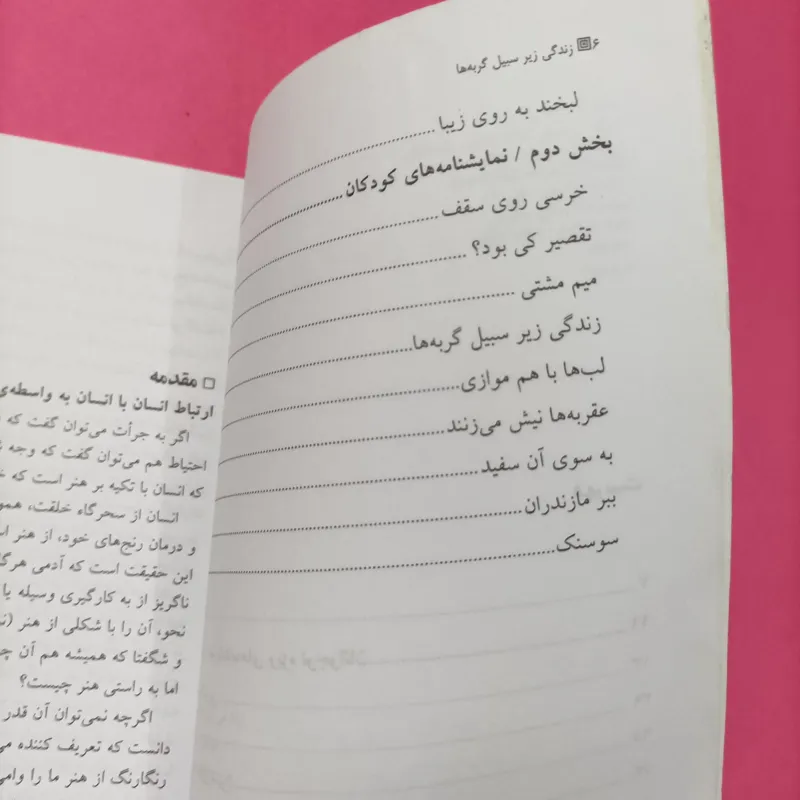 ۶ زندگی زیر سبیل گربه‌ها
لبخند به روی زیبا
بخش دوم / نمایشنامه‌های کودکان
خرسی روی سقف
تقصیر کی بود؟
میم مشتی
زندگی زیر سبیل گربه‌ها
لب‌ها با هم موازی
عقربه‌ها نیش می‌زنند
به سوی آن سفید
ببر مازندران
سوسنک
مقدمه
ارتباط انسان با انسان به واسطه‌ی
اگر به جرأت می‌توان گفت که
احتیاط هم می‌توان گفت که وجه
که انسان با تکیه بر هنر است که
انسان از سحرگاه خلقت،
و درمان رنج‌های خود، از هنر
این حقیقت است که آدمی
ناگریز از به کارگیری وسیله یا
نحو، آن را با شکلی از هنر
و شگفتا که همیشه هم آن
اما به راستی هنر چیست؟
اگرچه نمی‌توان آن قدر
دانست که تعریف کننده
رنگارنگ از هنر ما را